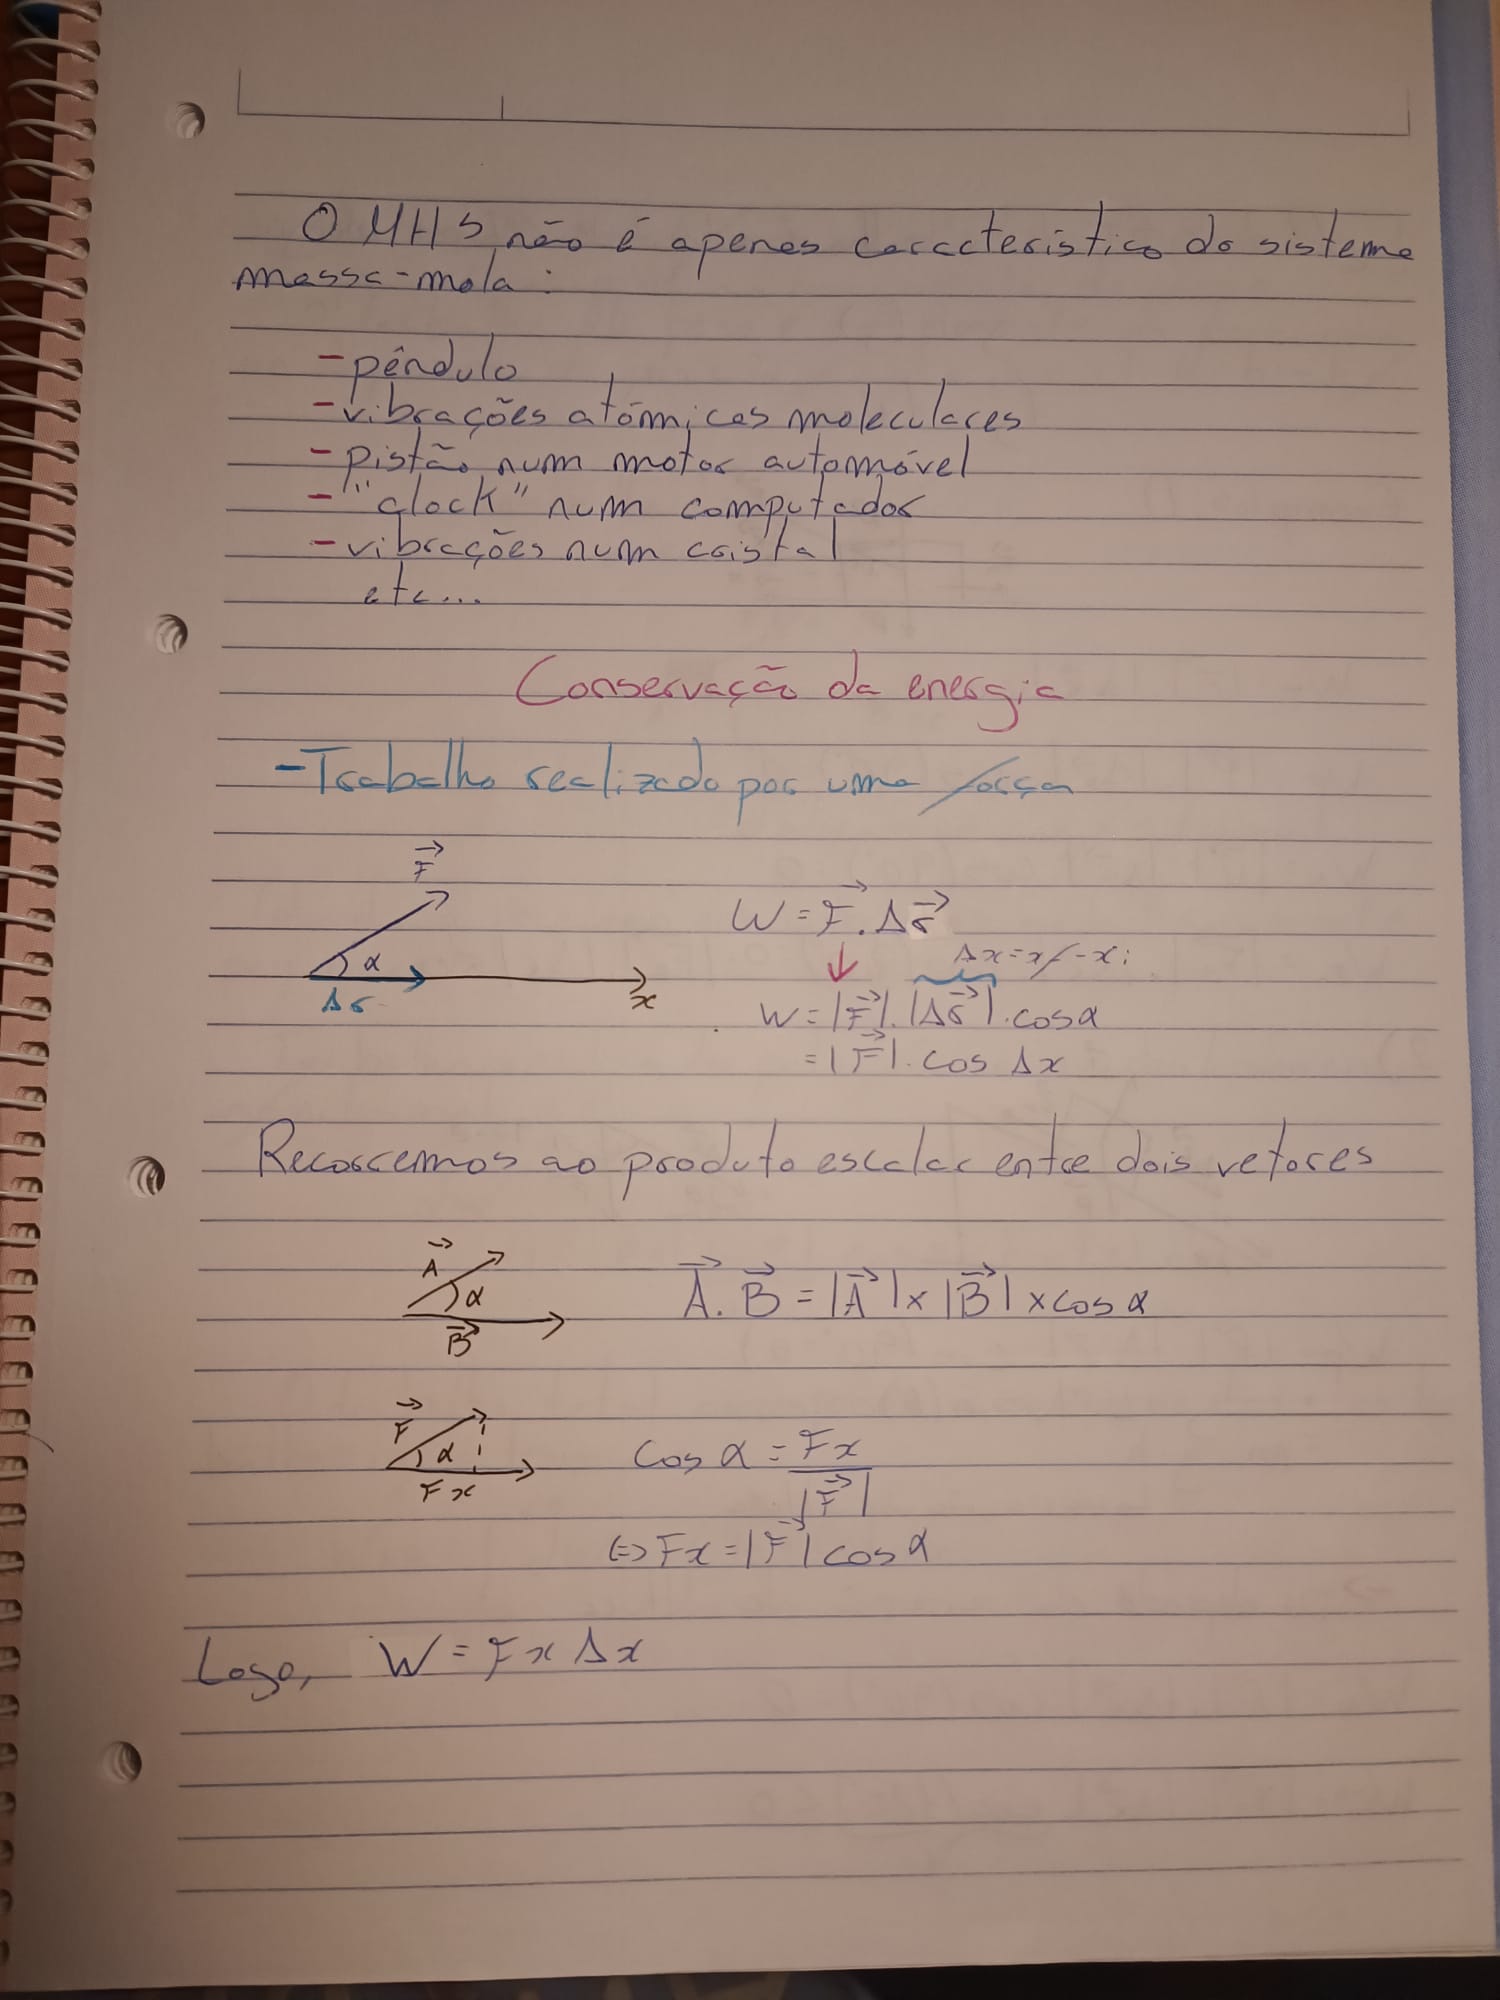 O MHS não é apenas característico do sistema
massa-mola:
- pêndulo
- vibrações atómicas moleculares
- pistão num motor automóvel
- "clock" num computador
- vibrações num cristal
etc...
Conservação da energia
- Trabalho realizado por uma força
F⃗
α
Δr
x
W = F⃗ . Δr⃗
Δx = xf - xi
W = |F⃗| . |Δr⃗| . cos α
= |F⃗| . cos Δx
Recorremos ao produto escalar entre dois vetores
A⃗
α
B⃗
A⃗ . B⃗ = |A⃗| × |B⃗| × cos α
F⃗
α
Fx
cos α = Fx / |F⃗|
⇔ Fx = |F⃗| cos α
Logo, W = Fx Δx